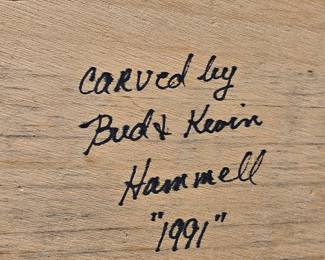 Carved by
Bud & Kevin
Hammell
"1991"